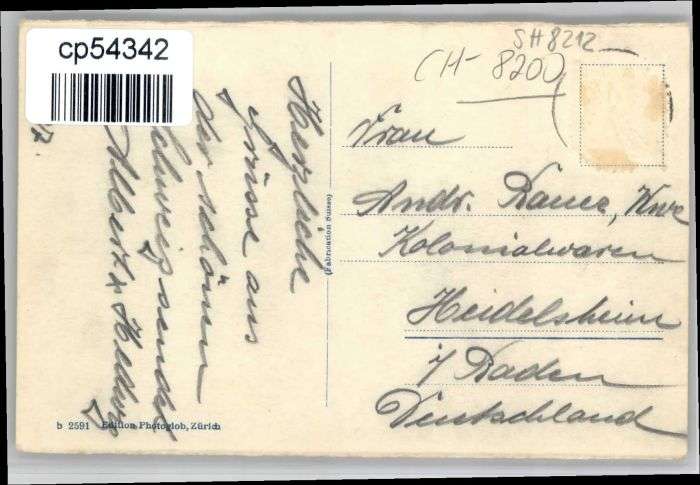 cp54342
SH8212
CH-8200
Herzliche
Grüsse aus
der schönen
Schweiz sendet
Albert & Hedwig
Frau
Andr. Bauer, Wwe
Kolonialwaren
Heidelsheim
i/ Baden
Deutschland
(Fabrication Suisse)
b 2591 Edition Photoglob, Zürich